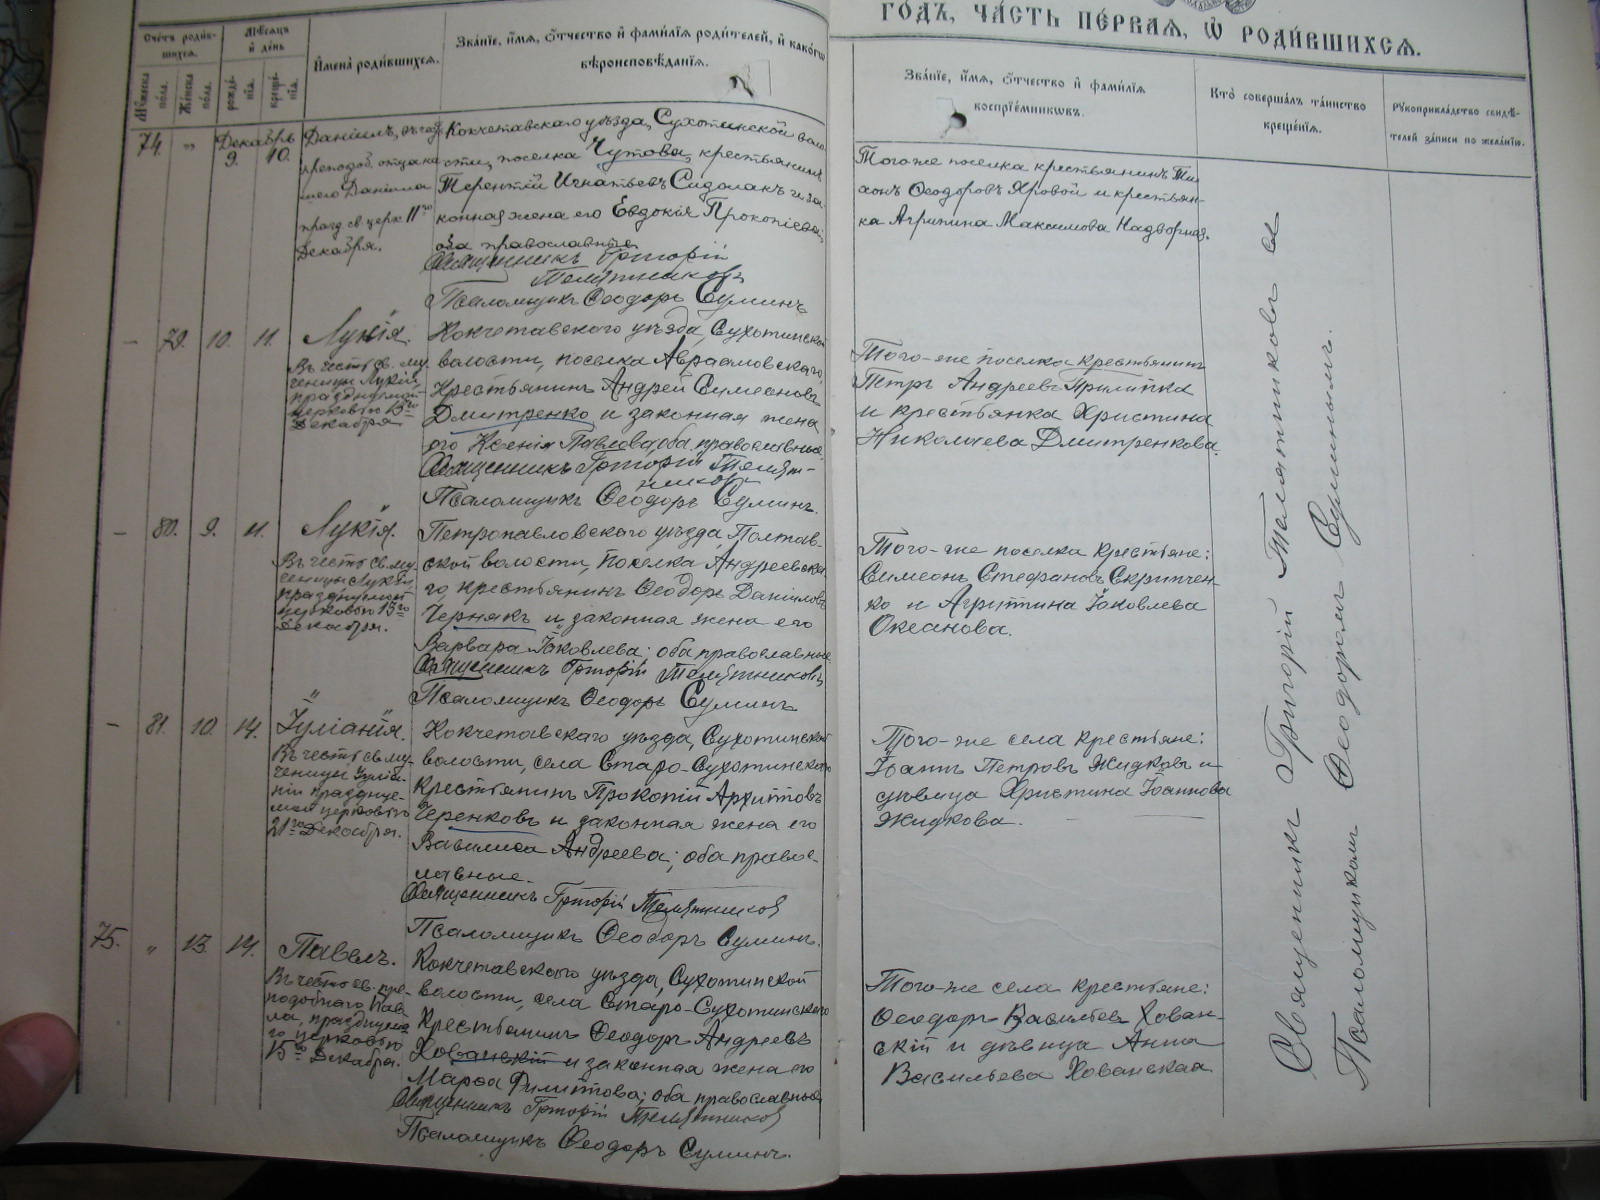 ГОДЪ, ЧАСТЬ ПЕРВАЯ, Ѡ РОДИВШИХСЯ.
Счетъ родив-
шихся.
Мѣсяцъ
и день
Мужеска
пола.
Женска
пола.
рожде-
нія.
креще-
нія.
Имена родившихся.
Званіе, имя, отчество и фамилія родителей, и какогѡ
вѣроисповѣданія.
Званіе, имя, отчество и фамилія
воспріемниковъ.
Кто совершалъ таинство
крещенія.
Рукоприкладство свидѣ-
телей записи по желанію.
74. " Декабрь
9. 10.
Даніилъ, въ честь
преподоб.
Даніила
празд. св. церк. 11го
Декабря.
Кокчетавскаго уѣзда, Сухотинской воло-
сти, поселка Чутова, крестьянинъ
Терентій Игнатьевъ Сидолакъ и за-
конная жена его Евдокія Прокопіева,
оба православные
Священникъ Григорій
Телятниковъ
Псаломщикъ Ѳеодоръ Суминъ
Того же поселка крестьянинъ Ти-
хонъ Ѳеодоровъ Яровой и крестьян-
ка Агрипина Максимова Надворная.
– 79. 10. 11. Лукія.
Въ честь св. му-
ченицы Лукіи,
празднуемой
церковью 13го
Декабря.
Кокчетавского уѣзда, Сухотинской
волости, поселка Авраамовскаго,
Крестьянинъ Андрей Симеоновъ
Дмитренко и законная жена
его Ксенія Павлова, оба православные.
Священникъ Григорій Телят-
никовъ
Псаломщикъ Ѳеодоръ Суминъ.
Того-же поселка крестьянинъ
Петръ Андреевъ Прилипка
и крестьянка Христина
Николаева Дмитренкова.
– 80. 9. 11. Лукія.
Въ честь св. му-
ченицы Лукіи,
празднуемой
церковью 13го
Декабря.
Петропавловского уѣзда, Полтав-
ской волости, поселка Андреевска-
го, крестьянинъ Ѳеодоръ Даніиловъ
Чернякъ и законная жена его
Варвара Іаковлева; оба православные
Священникъ Григорій Телятниковъ
Псаломщикъ Ѳеодоръ Суминъ
Того-же поселка крестьяне:
Симеонъ Стефановъ Скрипчен-
ко и Агриппина Іаковлева
Океанова.
– 81. 10. 14. Іуліанія.
Въ честь св. му-
ченицы Іуліа-
ніи праздну-
мой церковью
21го Декабря.
Кокчетавскаго уѣзда, Сухотинской
волости, села Старо-Сухотинского
крестьянинъ Прокопій Архиповъ
Черенковъ и законная жена его
Василиса Андреева; оба правос-
лавные.
Священникъ Григорій Телятников
Псаломщикъ Ѳеодоръ Суминъ.
Того-же села крестьяне:
Іоаннъ Петровъ Жидковъ и
дѣвица Христина Іоаннова
Жидкова.
75. " 13. 14. Павелъ.
Въ честь св. пре-
подобнаго Пав-
ла, празднуема-
го церковью
15го Декабря.
Кокчетавского уѣзда, Сухотинской
волости, села Старо-Сухотинского
крестьянинъ Ѳеодоръ Андреевъ
Хованскій и законная жена его
Марѳа Филиппова; оба православные
Священникъ Григорій Телятников
Псаломщикъ Ѳеодоръ Суминъ.
Того-же села крестьяне:
Ѳеодоръ Васильевъ Хован-
скій и дѣвица Анна
Васильева Хованская
Священникъ Григорій Телятниковъ съ
Псаломщикомъ Ѳеодоромъ Суминымъ.